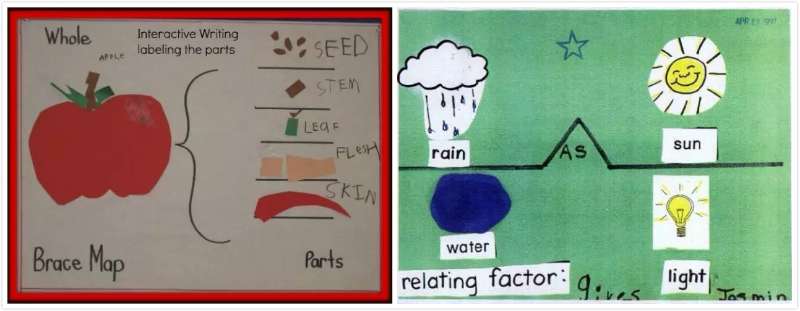 Whole
Interactive Writing
labeling the parts
APPLE
SEED
STEM
LEAF
FLESH
SKIN
Brace Map
Parts
rain
AS
sun
water
light
relating factor: gives
Jasmin